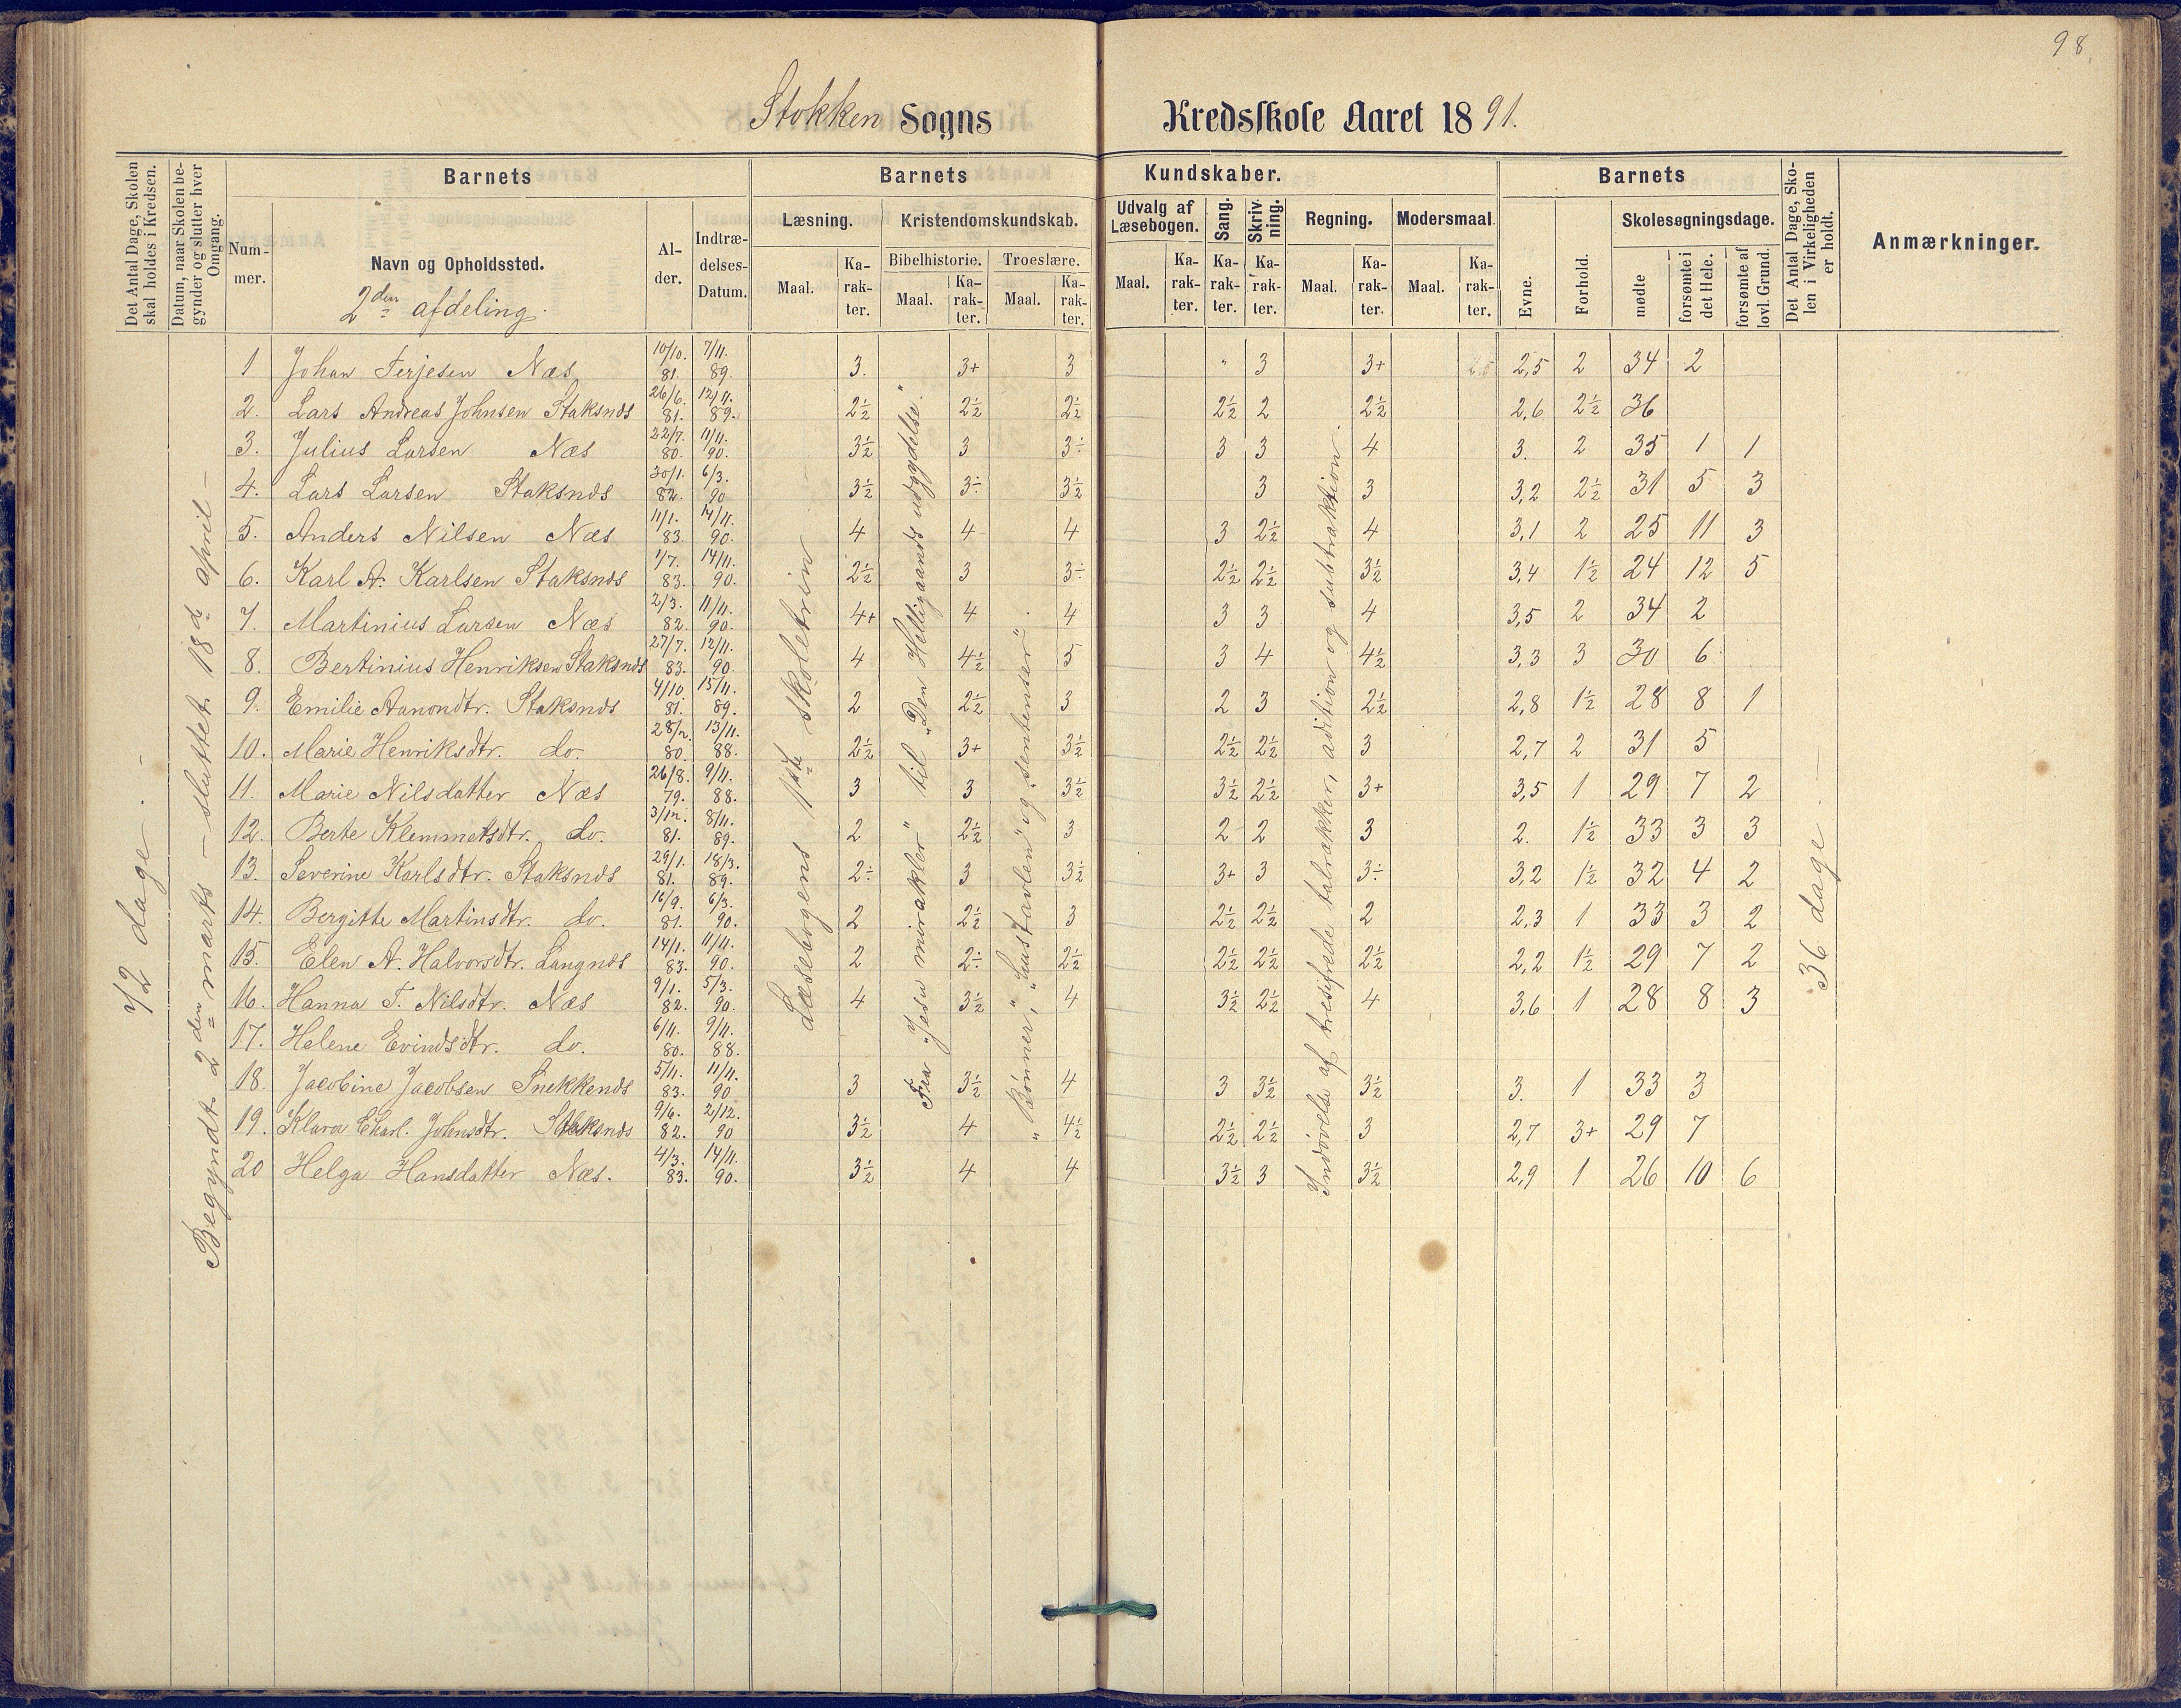 98.
Stokken Sogns Kredsskole Aaret 1891.
Det Antal Dage, Skolen skal holdes i Kredsen.
Datum, naar Skolen begynder og slutter hver Omgang.
Barnets
Nummer.
Navn og Opholdssted.
2den afdeling.
Alder.
Indtrædelses-Datum.
Barnets Kundskaber.
Læsning.
Maal. Karakter.
Kristendomskundskab.
Bibelhistorie. Troeslære.
Maal. Karakter. Maal. Karakter.
Udvalg af Læsebogen.
Maal. Karakter.
Sang. Karakter.
Skrivning. Karakter.
Regning.
Maal. Karakter.
Modersmaal.
Maal. Karakter.
Barnets
Evne. Forhold.
Skolesøgningsdage.
mødte forsømte i det Hele. forsømte af lovl. Grund.
Det Antal Dage, Skolen i Virkeligheden er holdt.
Anmærkninger.
72 dage. —
Begyndt 2den marts — sluttet 18de april —
Læsebogens 1ste skoletrin
Fra "Jesu mirakler" til "Den Helligaands udgydelse".
"Bønner", "Hustavlen" og "sentenser"
Indøvelse af tresifrede talrækker, adition og subtraktion.
36 dage —
1 Johan Terjesen Næs 10/10. 81. 7/11. 89. 3. 3+ 3 " 3 3+ 2,5 2,5 2 34 2
2. Lars Andreas Johnsen Staksnds 26/6. 81. 12/11. 89. 2½ 2½ 2½ 2½ 2 2½ 2,6 2½ 36
3. Julius Larsen Næs 22/7. 80. 11/11. 90. 3½ 3 3÷ 3 3 4 3. 2 35 1 1
4. Lars Larsen Staksnds 30/1. 82. 6/3. 90 3½ 3÷ 3½ 3 3 3,2 2½ 31 5 3
5. Anders Nilsen Næs 11/1. 83. 14/11. 90. 4 4 4 3 2½ 4 3,1 2 25 11 3
6. Karl A. Karlsen Staksnds 1/7. 83. 14/11. 90. 2½ 3 3÷ 2½ 2½ 3½ 3,4 1½ 24 12 5
7. Martinius Larsen Næs 2/3. 82. 11/11. 90. 4+ 4 4 3 3 4 3,5 2 34 2
8. Bertinius Henriksen Staksnds 27/7. 83. 12/11. 90 4 4½ 5 3 4 4½ 3,3 3 30 6
9. Emilie Aanondtr. Staksnds 4/10. 81. 15/11. 89. 2 2½ 3 2 3 2½ 2,8 1½ 28 8 1
10. Marie Henriksdtr. do. 28/12. 80. 13/11. 88. 2½ 3+ 3½ 2½ 2½ 3 2,7 2 31 5
11. Marie Nilsdatter Næs 26/8. 79. 9/11. 88. 3 3 3½ 3½ 2½ 3+ 3,5 1 29 7 2
12. Berte Klemmetsdtr. do. 3/12. 81. 8/11. 89. 2 2½ 3 2 2 3 2. 1½ 33 3 3
13. Severine Karlsdtr. Staksnds 29/1. 81. 18/3. 89. 2÷ 3 3½ 3+ 3 3÷ 3,2 1½ 32 4 2
14. Bergitte Martinsdtr. do. 16/9. 81. 6/3. 90. 2 2½ 3 2½ 2½ 2 2,3 1 33 3 2
15. Elen A. Halvorsdtr. Langnds 14/1. 83. 11/11. 90. 2 2÷ 2½ 2½ 2½ 2½ 2,2 1½ 29 7 2
16. Hanna T. Nilsdtr. Næs 9/1. 82. 5/3. 90. 4 3½ 4 3½ 2½ 4 3,6 1 28 8 3
17. Helene Evindsdtr. do. 6/11. 80. 9/11. 88.
18. Jacobine Jacobsen Snekkends 5/11. 83. 11/11. 90 3 3½ 4 3 3½ 3½ 3. 1 33 3
19. Klara Charl. Johnsdtr. Staksnds 9/6. 82. 2/12. 90 3½ 4 4½ 2½ 2½ 3 2,7 3+ 29 7
20 Helga Hansdatter Næs. 4/3. 83. 14/11. 90. 3½ 4 4 3½ 3 3½ 2,9 1 26 10 6